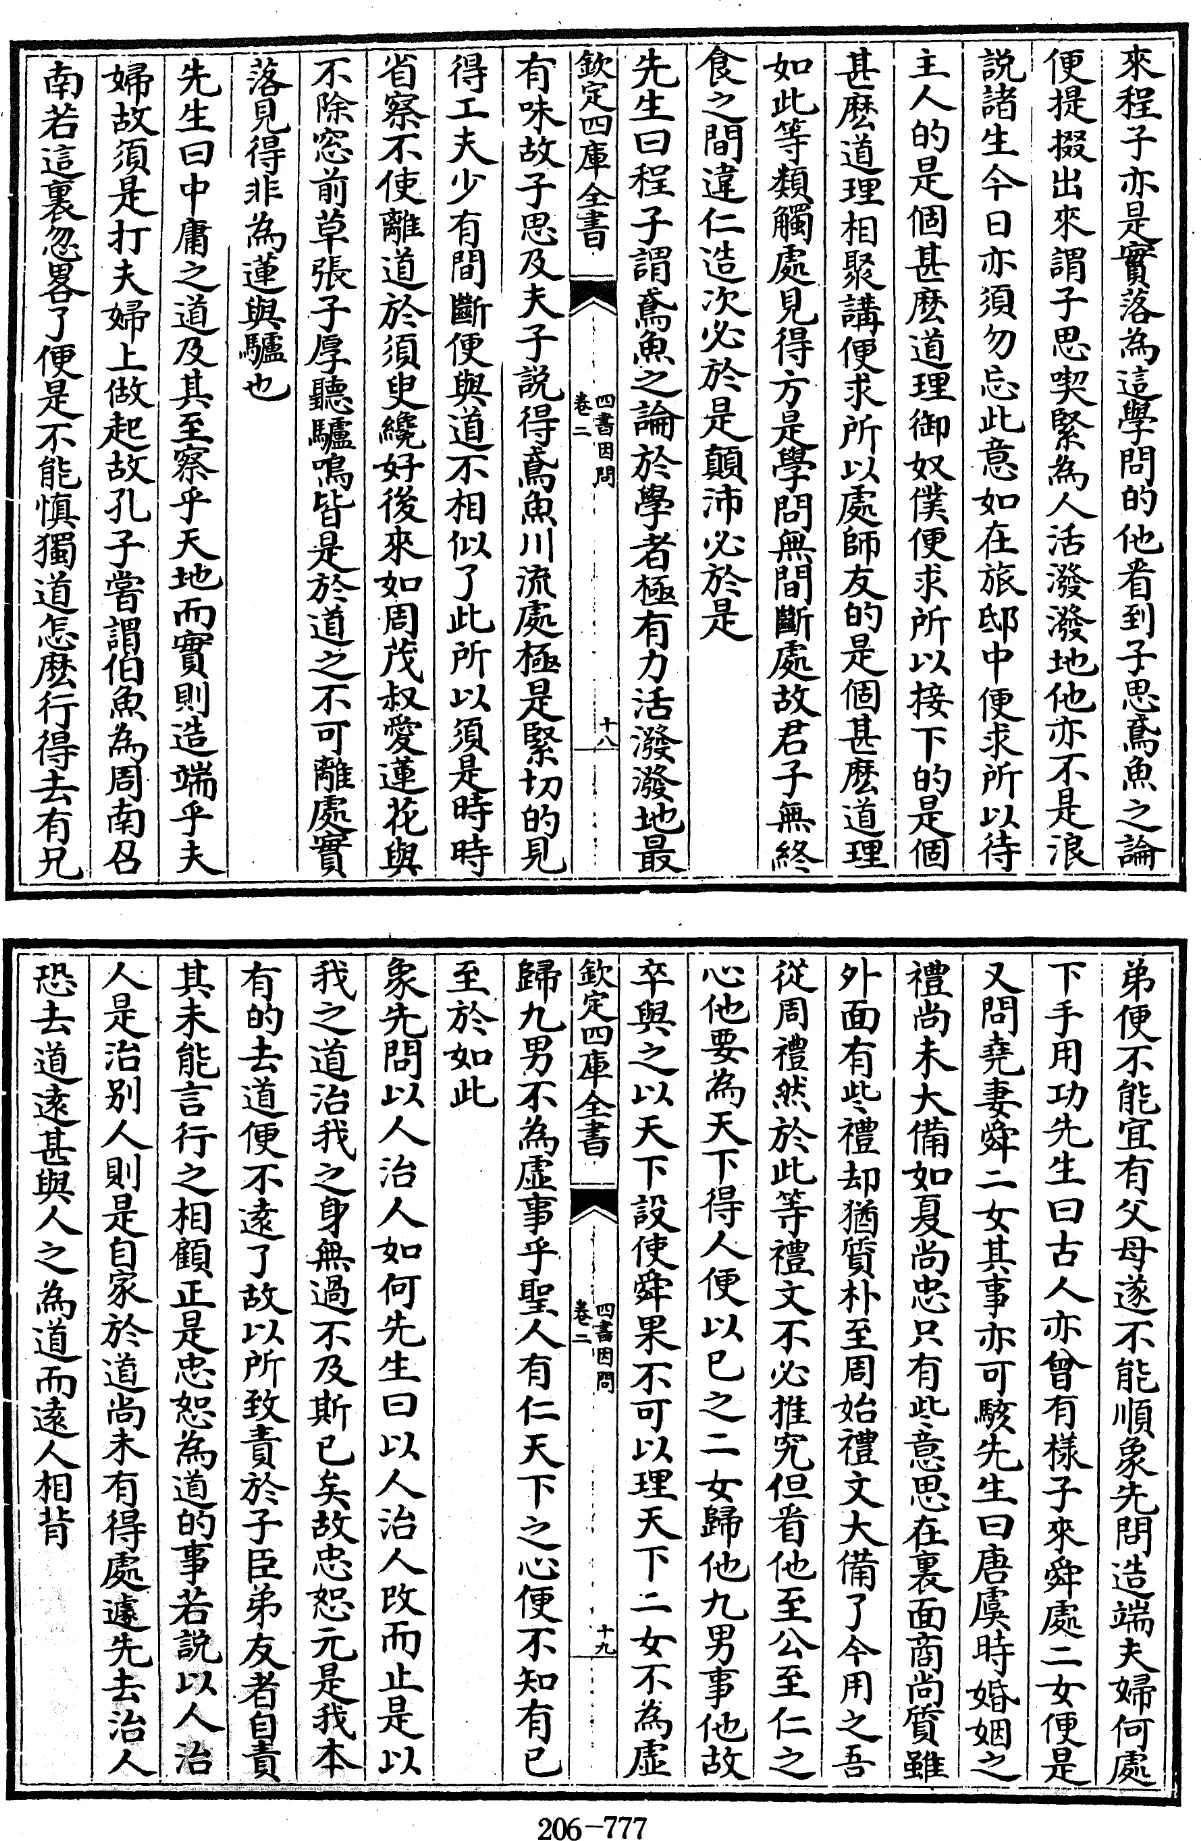 來程子亦是實落為這學問的他看到子思鳶魚之論
便提掇出來謂子思喫緊為人活潑潑地他亦不是浪
説諸生今日亦須勿忘此意如在旅邸中便求所以待
主人的是個甚麽道理御奴僕便求所以接下的是個
甚麽道理相聚講便求所以處師友的是個甚麽道理
如此等類觸處見得方是學問無間斷處故君子無終
食之間違仁造次必於是顛沛必於是
先生曰程子謂鳶魚之論於學者極有力活潑潑地最
欽定四庫全書
四書因問
卷二
十八
有味故子思及夫子説得鳶魚川流處極是緊切的見
得工夫少有間斷便與道不相似了此所以須是時時
省察不使離道於須臾纔好後來如周茂叔愛蓮花與
不除窓前草張子厚聽驢鳴皆是於道之不可離處實
落見得非為蓮與驢也
先生曰中庸之道及其至察乎天地而實則造端乎夫
婦故須是打夫婦上做起故孔子嘗謂伯魚為周南召
南若這裏忽畧了便是不能慎獨道怎麽行得去有兄
弟便不能宜有父母遂不能順象先問造端夫婦何處
下手用功先生曰古人亦曾有樣子來舜處二女便是
又問堯妻舜二女其事亦可駭先生曰唐虞時婚姻之
禮尚未大備如夏尚忠只有此意思在裏面商尚質雖
外面有些禮却猶質朴至周始禮文大備了今用之吾
從周禮然於此等禮文不必推究但看他至公至仁之
心他要為天下得人便以已之二女歸他九男事他故
卒與之以天下設使舜果不可以理天下二女不為虛
欽定四庫全書
四書因問
卷二
十九
歸九男不為虛事乎聖人有仁天下之心便不知有已
至於如此
象先問以人治人如何先生曰以人治人改而止是以
我之道治我之身無過不及斯已矣故忠恕元是我本
有的去道便不遠了故以所致責於子臣弟友者自責
其未能言行之相顧正是忠恕為道的事若説以人治
人是治别人則是自家於道尚未有得處遽先去治人
恐去道遠甚與人之為道而遠人相背
206-777